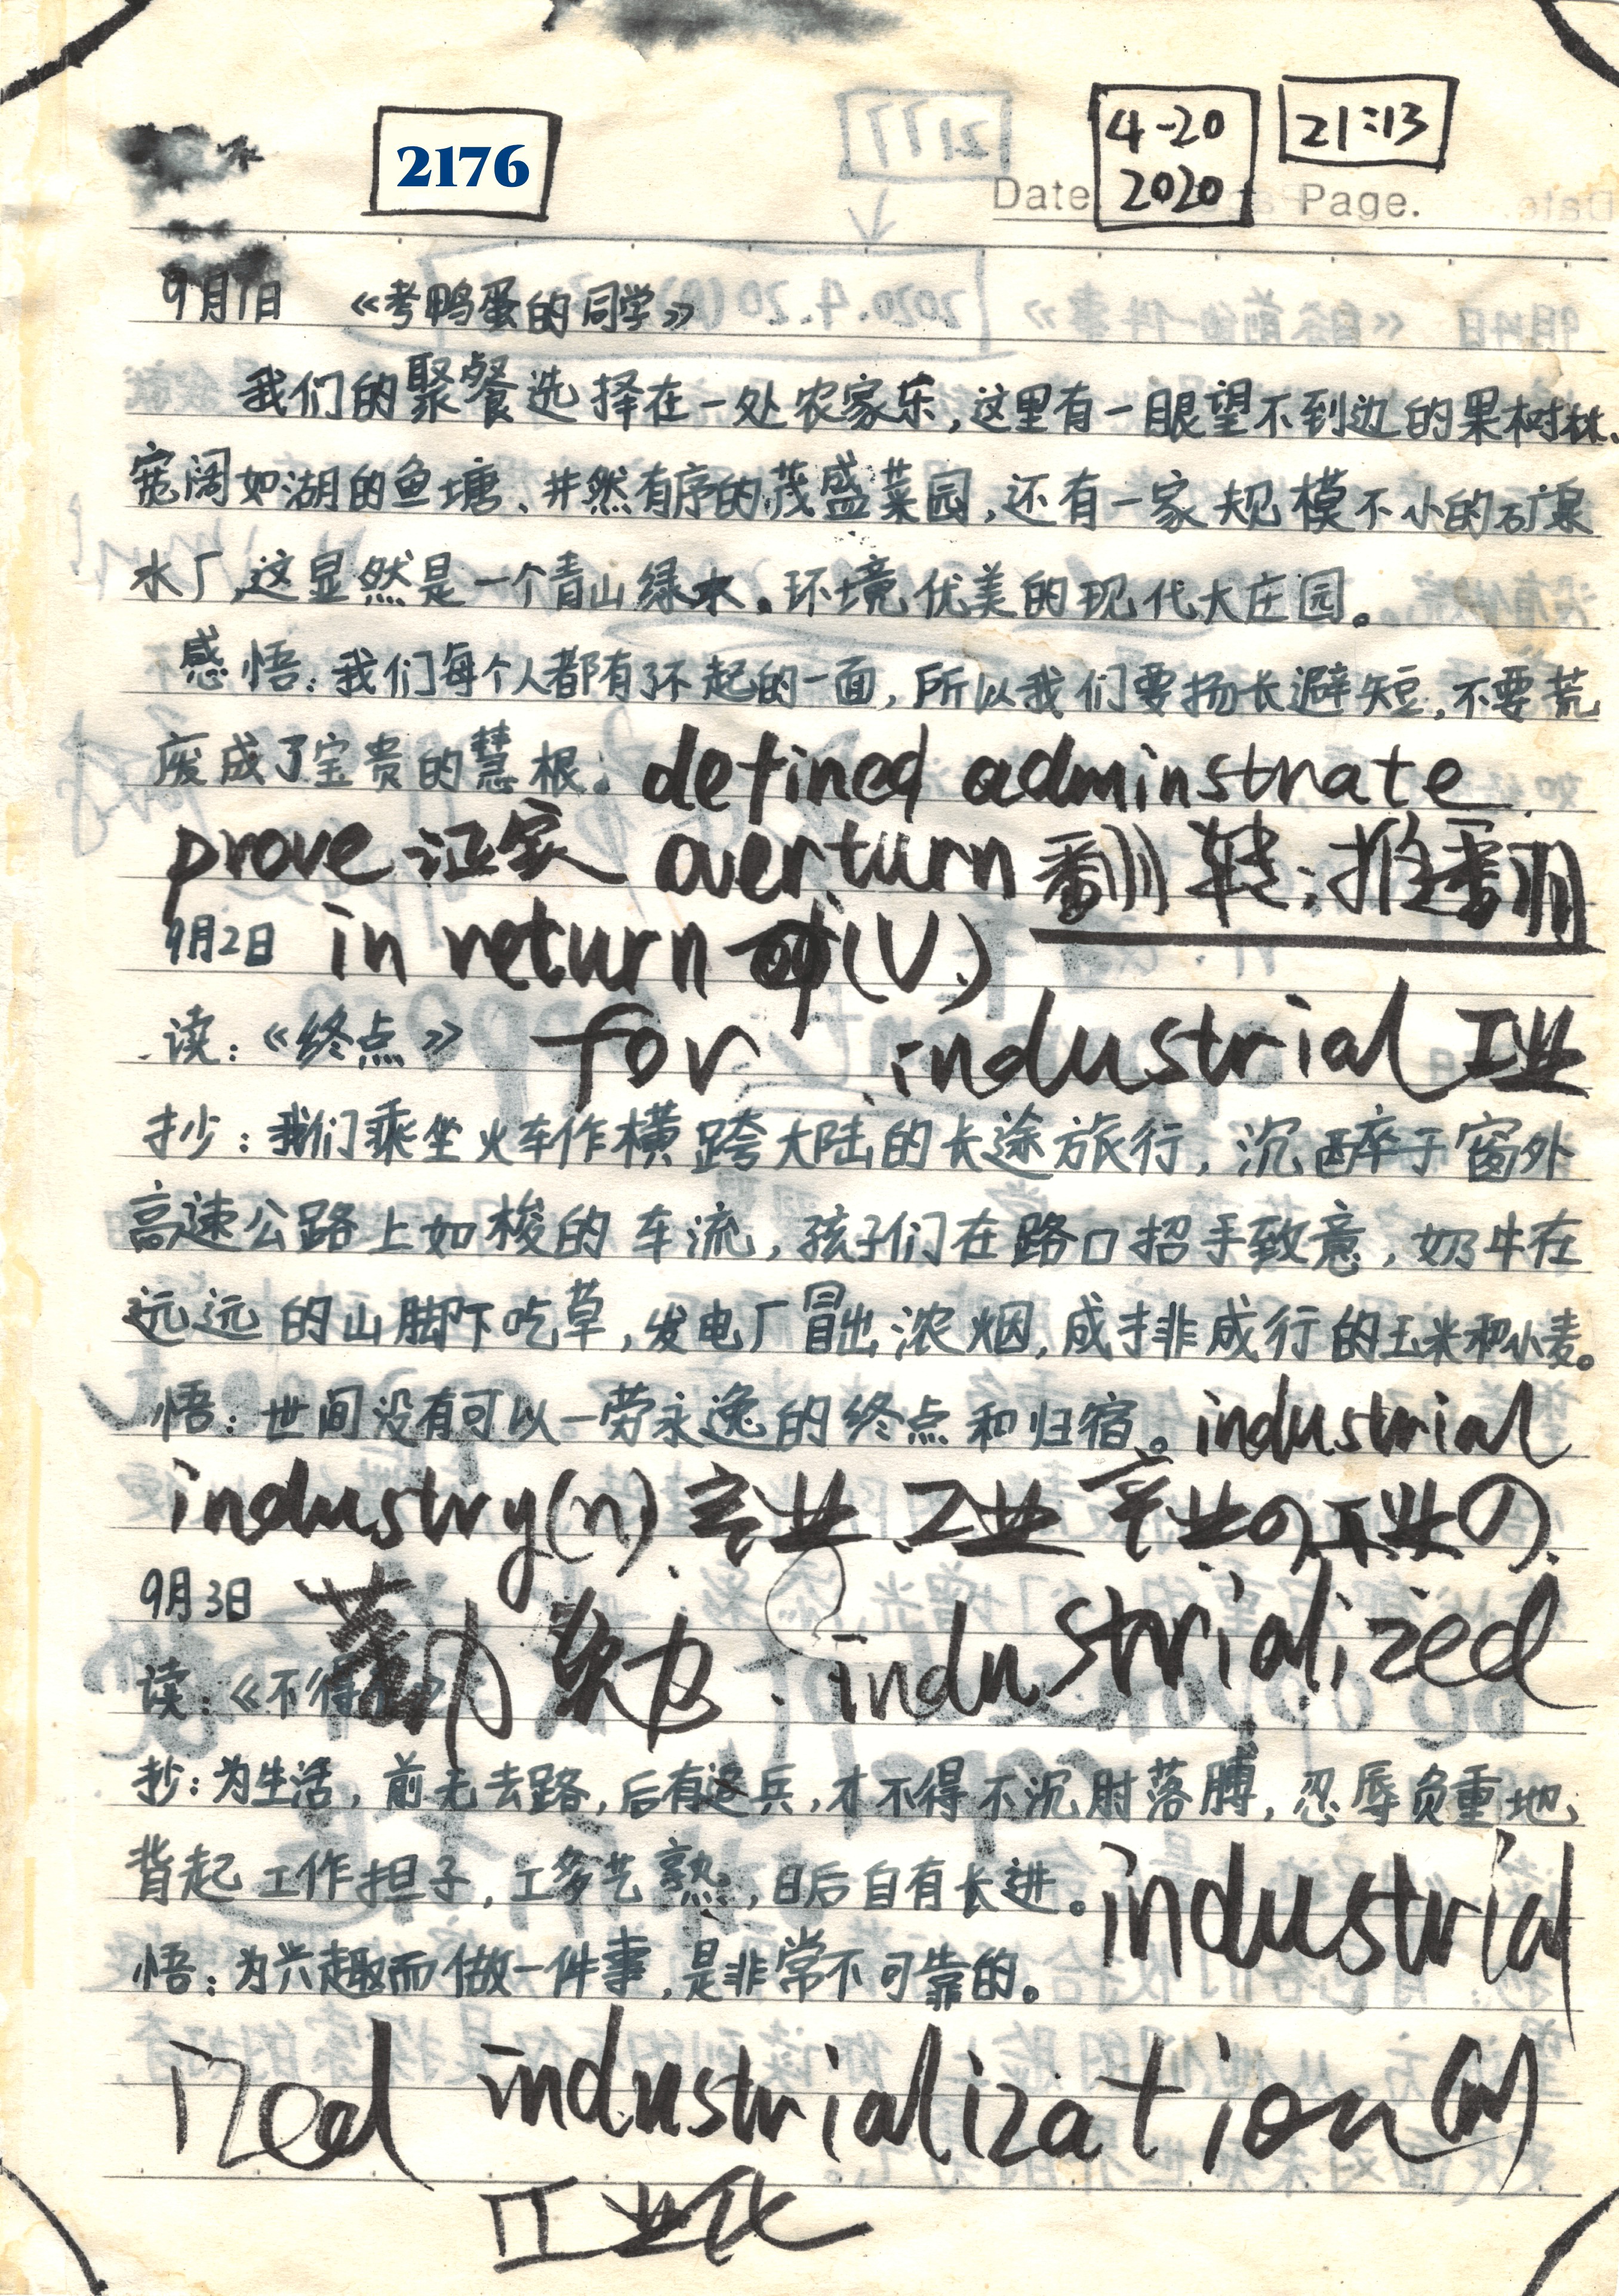 2176
4-20
2020
21:13
Date
Page.
9月1日 《考鸭蛋的同学》
我们的聚餐选择在一处农家乐,这里有一眼望不到边的果树林、
宽阔如湖的鱼塘、井然有序的茂盛菜园,还有一家规模不小的矿泉
水厂,这显然是一个青山绿水。环境优美的现代大庄园。
感悟:我们每个人都有了不起的一面,所以我们要扬长避短,不要荒
废成了宝贵的慧根。 defined adminstrate
prove 证实 overturn 翻转;推翻
9月2日 in return (V.)
读:《终点》 for industrial 工业
抄:我们乘坐火车作横跨大陆的长途旅行,沉醉于窗外
高速公路上如梭的车流,孩子们在路口招手致意,奶牛在
远远的山脚下吃草,发电厂冒出浓烟,成排成行的玉米和小麦。
悟:世间没有可以一劳永逸的终点和归宿。industrial
industry(n) 产业 工业 产业の 工业の
9月3日 industrialized
读:《不得
抄:为生活,前无去路,后有追兵,才不得不沉肘落膊,忍辱负重地
背起工作担子,工多艺熟,日后自有长进。industrial
悟:为兴趣而做一件事,是非常不可靠的。
ized industrialization (n)
工业化